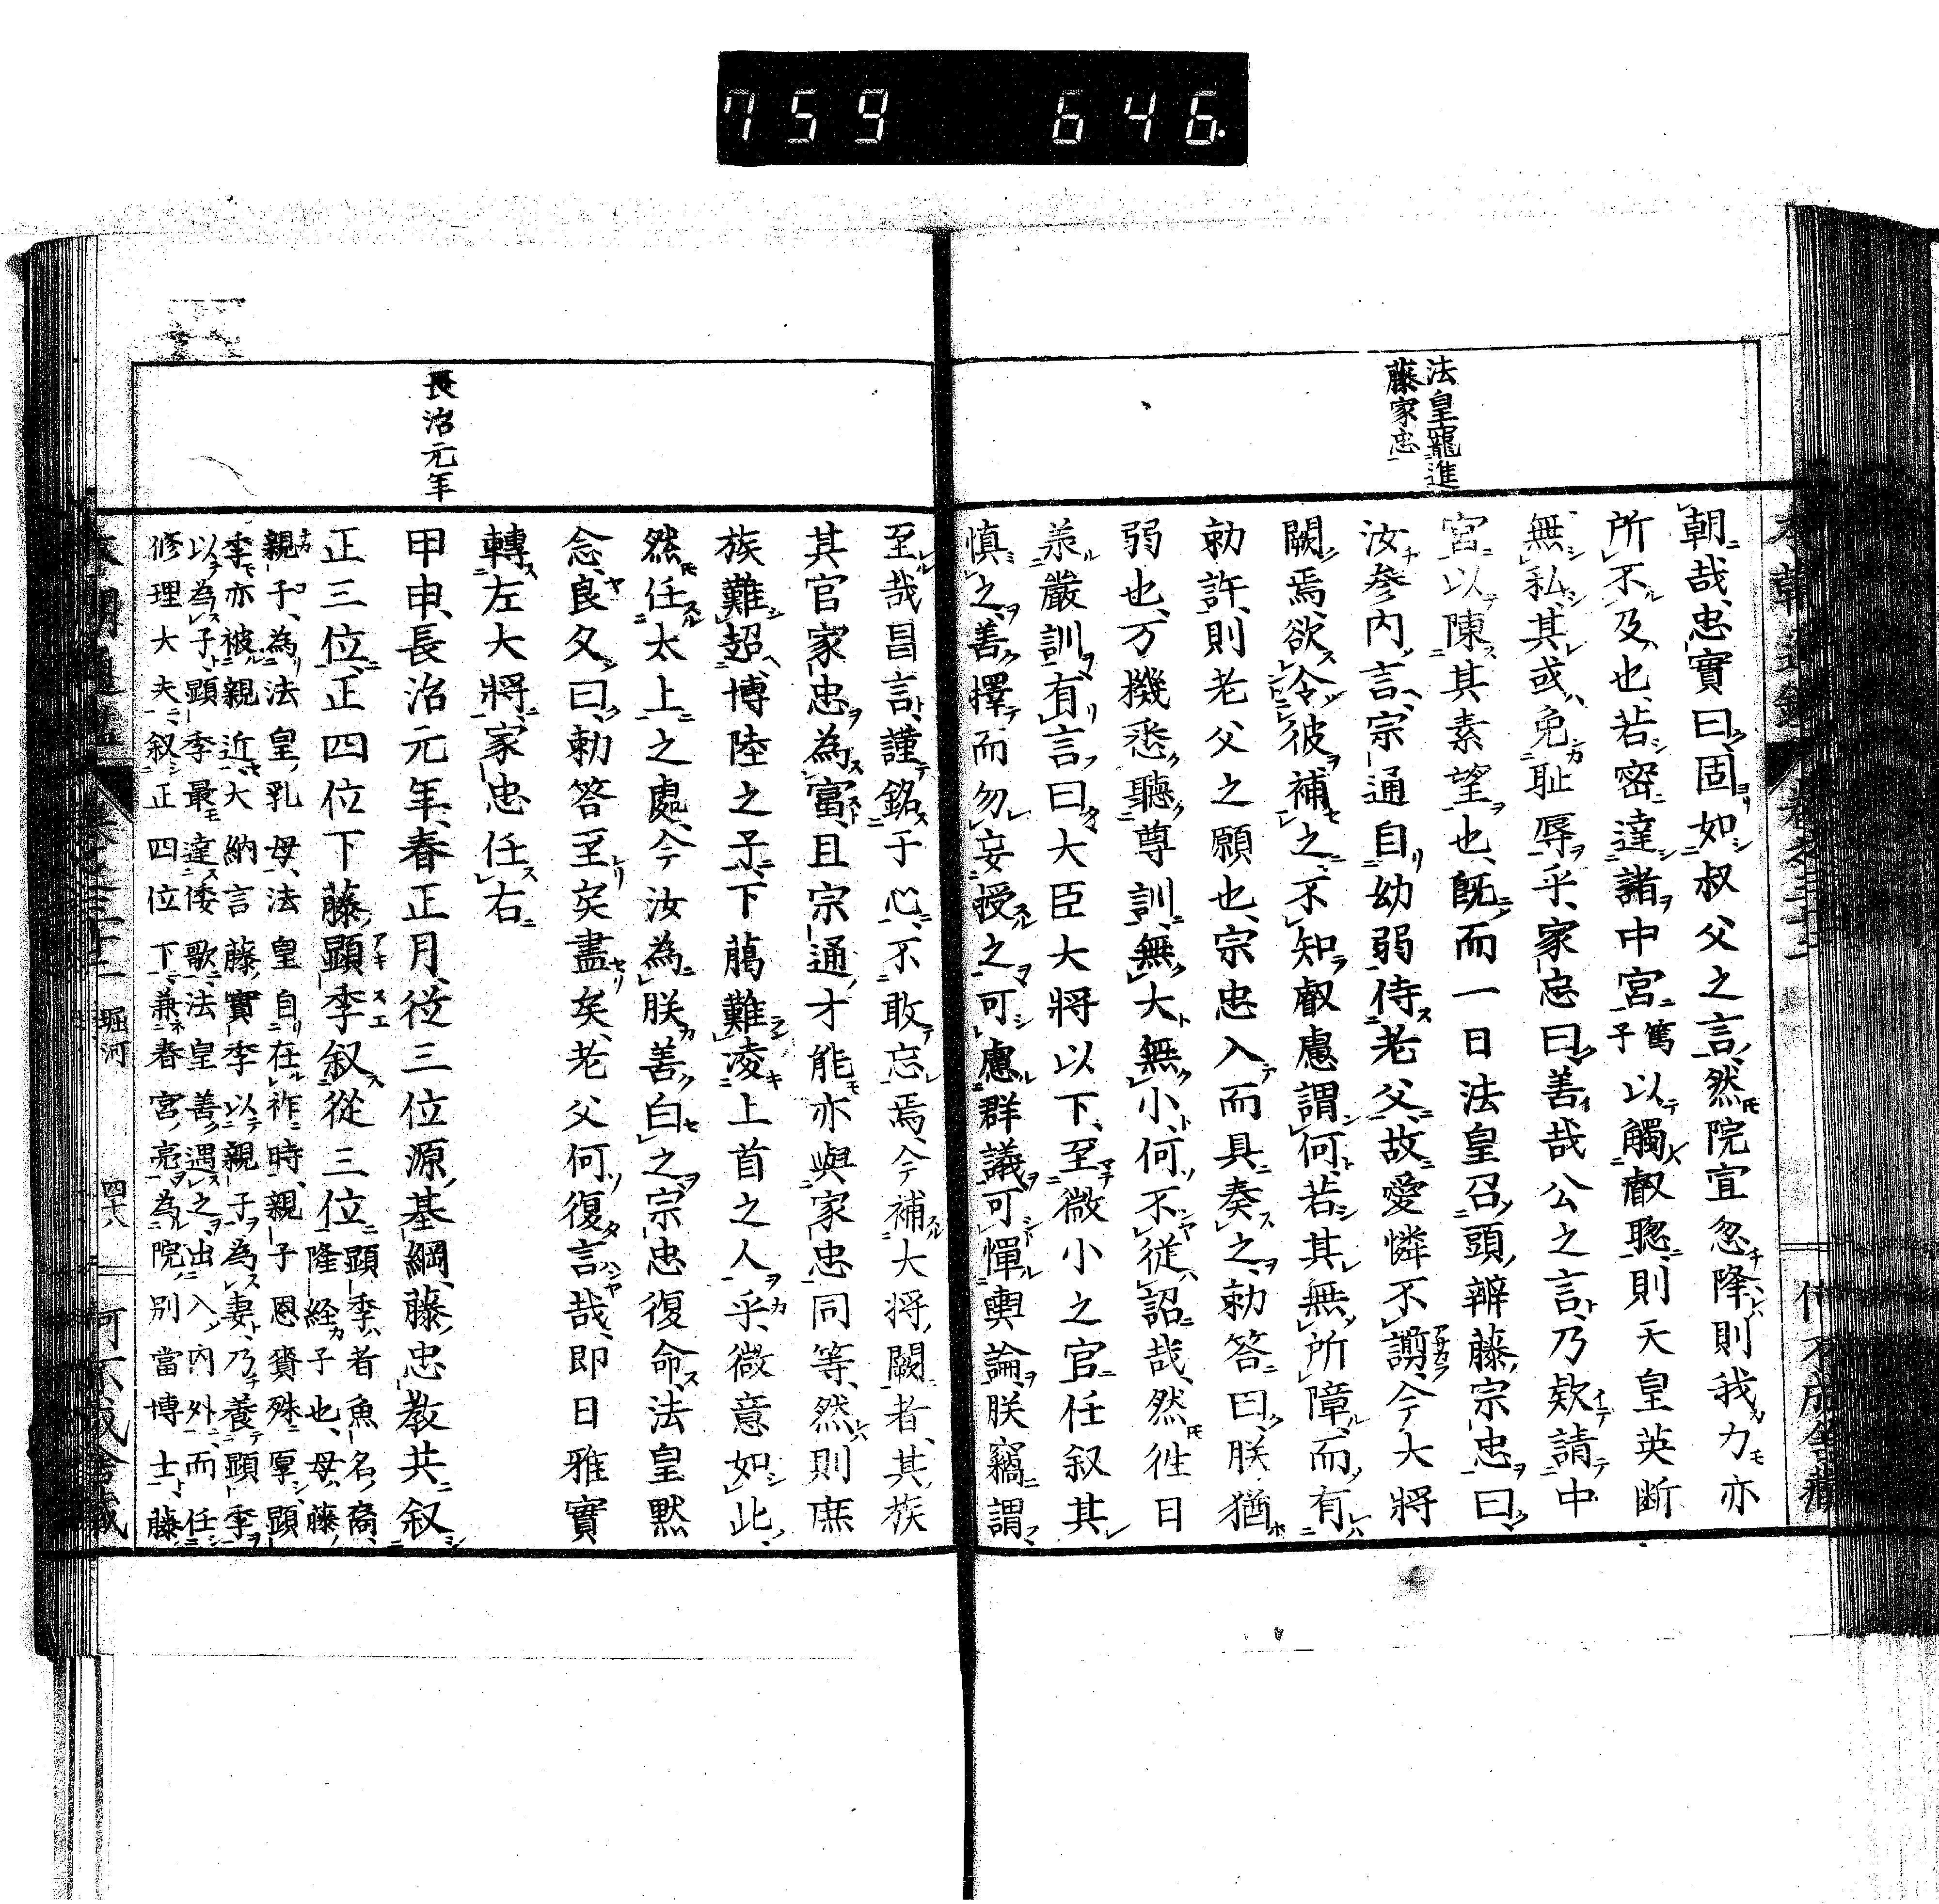 759 646.
法皇寵進
藤家忠
朝哉、忠實曰、固如叔父之言、然院宣忽降、則我力亦
所不及也、若密達諸中宮篤子以觸叡聰、則天皇英断
無私、其或免耻辱乎、家忠曰、善哉公之言、乃欵請中
宮、以陳其素望也、既而一日法皇召頭辨藤宗忠曰、
汝參内言、宗通自幼弱侍老父、故愛憐不謭、今大將
闕焉、欲令彼補之、不知叡慮謂何、若其無所障、而有
勅許、則老父之願也、宗忠入而具奏之、勅答曰、朕猶
弱也、万機悉聽尊訓、無大無小、何不従詔哉、然徃日
羕嚴訓、有言曰、大臣大將以下、至微小之官、任叙其
慎之、善擇而勿妄授之、可慮群議、可憚輿論、朕竊謂、
至哉昌言、謹銘于心、不敢忘焉、今補大将闕者、其族
其官家忠為富、且宗通才能亦與家忠同等、然則庶
族難超、博陸之子、下﨟難凌上首之人乎、微意如此、
然任太上之處、今汝為朕善白之、宗忠復命、法皇黙
念良久曰、勅答至矣盡矣、老父何復言哉、即日雅實
轉左大將、家忠任右
長治元年
甲申、長治元年、春正月、従三位源基綱、藤忠教共叙
正三位、正四位下藤顕季叙從三位顕季者魚名裔、
隆経子也、母藤
親子、為法皇乳母、法皇自在祚時、親子恩賚殊厚、顕
季亦被親近、大納言藤實季以親子為妻、乃養顕季
以為子、顕季最達倭歌、法皇善遇之、出入内外、而任
修理大夫、叙正四位下、兼春宮亮、為院別當博士、藤
堀河
四十八